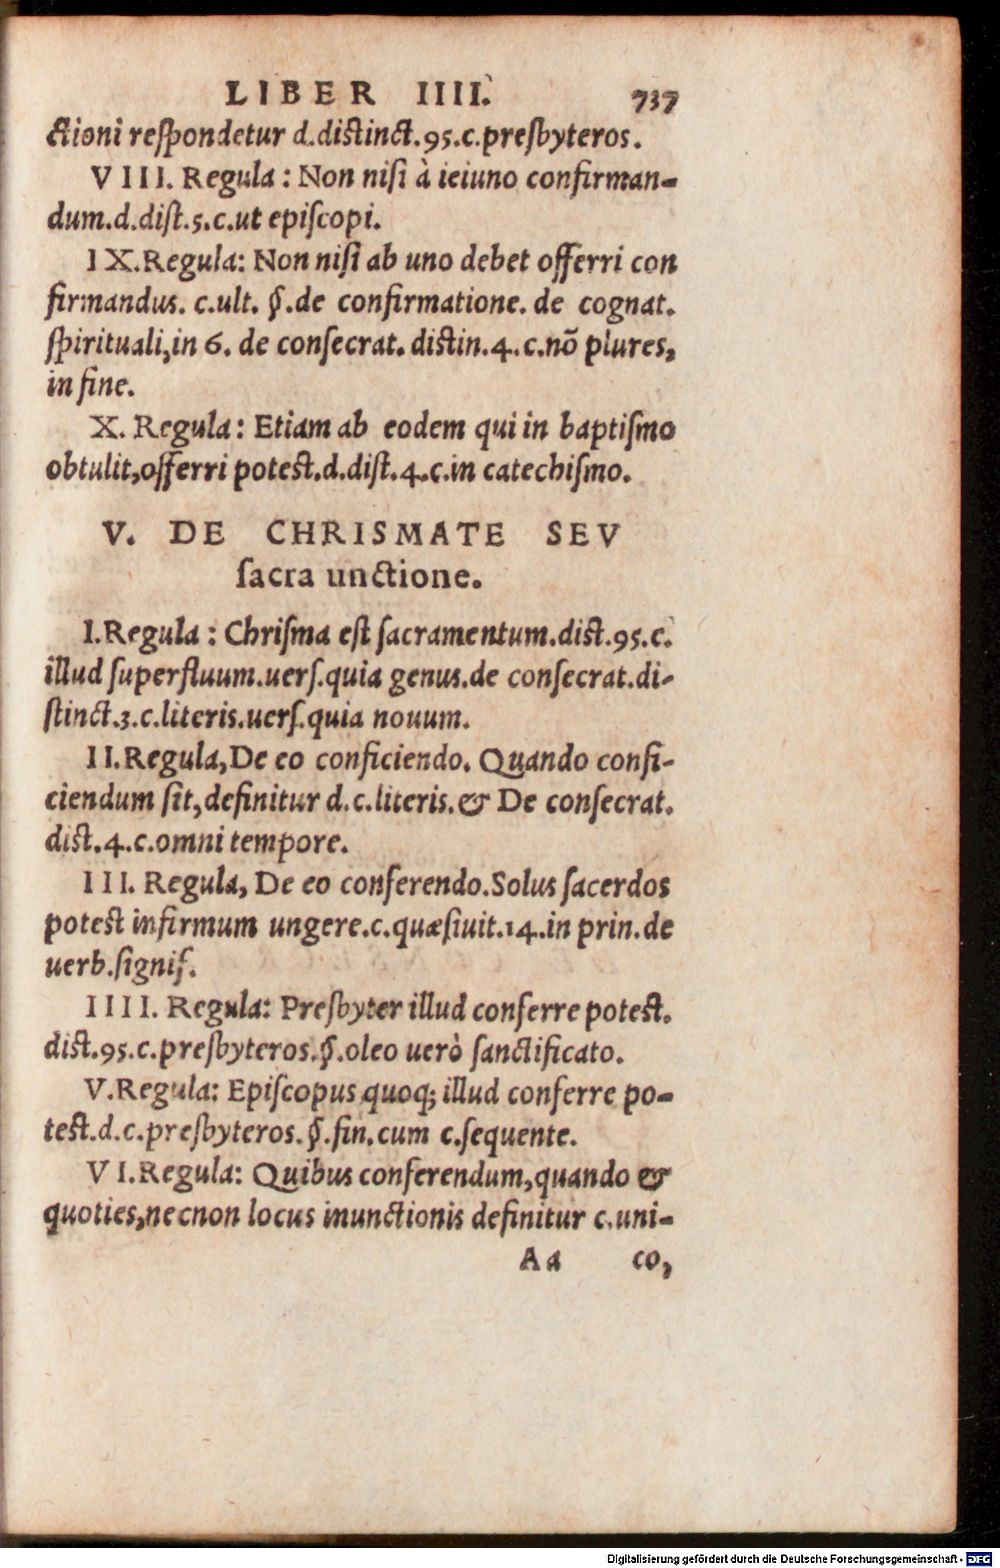 LIBER IIII. 737
ctioni reſpondetur d.diſtinct.95.c.presbyteros.
VIII. Regula: Non niſi à ieiuno confirman-
dum.d.diſt.5.c.ut epiſcopi.
IX.Regula: Non niſi ab uno debet offerri con
firmandus. c.ult. §.de confirmatione. de cognat.
ſpirituali,in 6. de conſecrat. diſtin.4.c.nõ plures,
in fine.
X. Regula: Etiam ab eodem qui in baptiſmo
obtulit,offerri poteſt.d.diſt.4.c.in catechiſmo.
V. DE CHRISMATE SEV
ſacra unctione.
I.Regula: Chriſma eſt ſacramentum.diſt.95.c.
illud ſuperfluum.uerſ.quia genus.de conſecrat.di-
ſtinct.3.c.literis.uerſ.quia nouum.
II.Regula,De eo conficiendo. Quando confi-
ciendum ſit,definitur d.c.literis.& De conſecrat.
diſt.4.c.omni tempore.
III. Regula, De eo conferendo.Solus ſacerdos
poteſt infirmum ungere.c.quæſiuit.14.in prin.de
uerb.ſignif.
IIII. Regula: Presbyter illud conferre poteſt.
diſt.95.c.presbyteros.§.oleo uerò ſanctificato.
V.Regula: Epiſcopus quoq; illud conferre po-
teſt.d.c.presbyteros.§.fin.cum c.ſequente.
VI.Regula: Quibus conferendum,quando &
quoties,necnon locus inunctionis definitur c.uni-
Aa co,
Digitalisierung gefördert durch die Deutsche Forschungsgemeinschaft - DFG